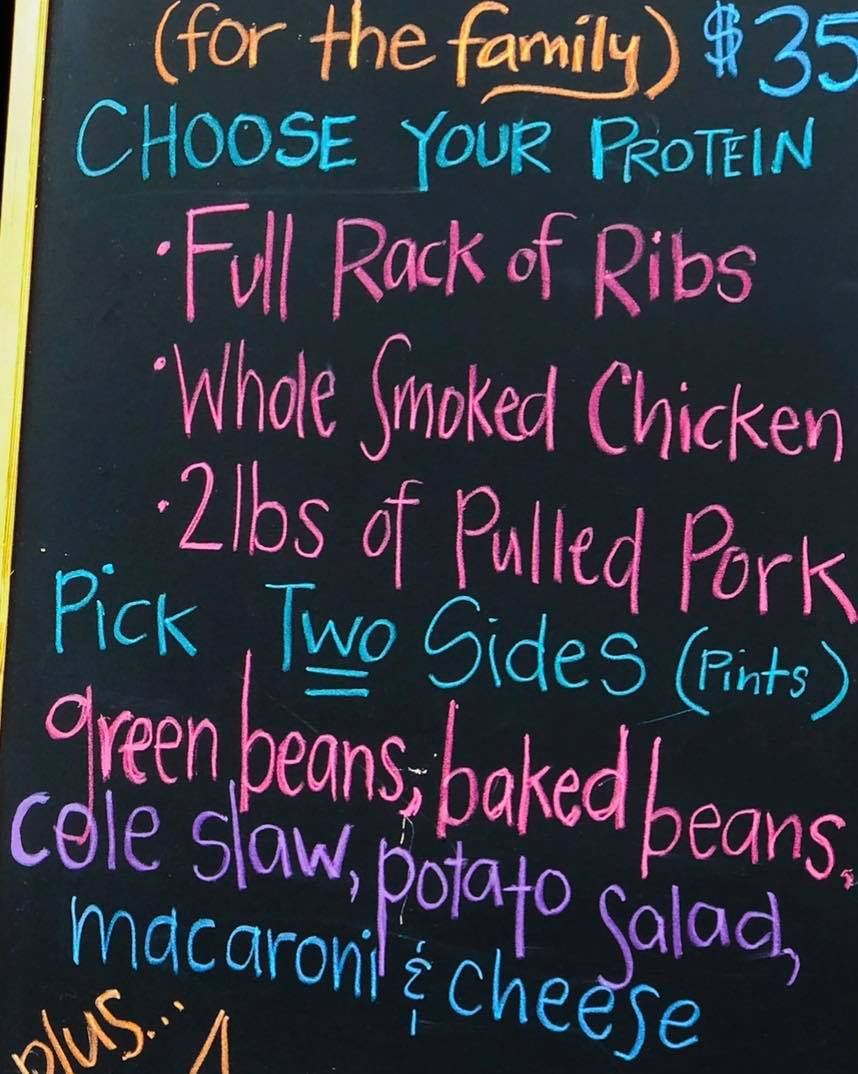 (for the family) $35
CHOOSE YOUR PROTEIN
· Full Rack of Ribs
· Whole Smoked Chicken
· 2lbs of Pulled Pork
Pick Two Sides (Pints)
green beans, baked beans,
cole slaw, potato salad,
macaroni & cheese
plus...